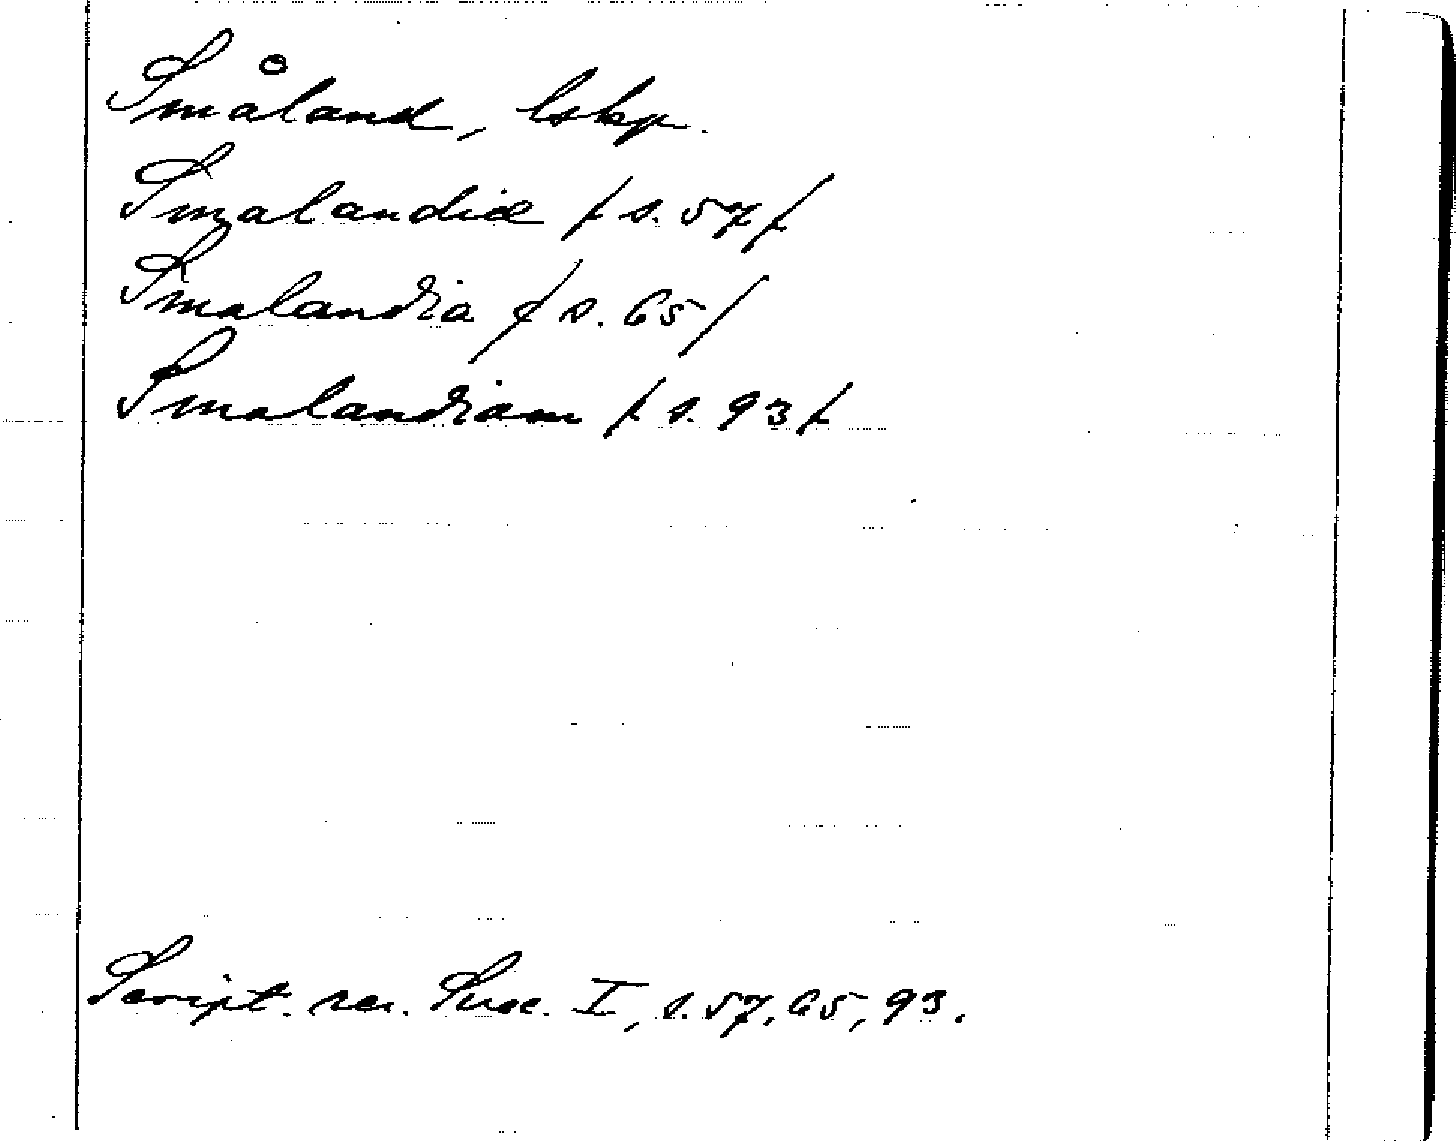 Småland, lskp.
Smalandiæ / s. 57/
Smalandia / s. 65/
Smalandiam / s. 93/
Script. rer. Suec. I, s. 57, 65, 93.